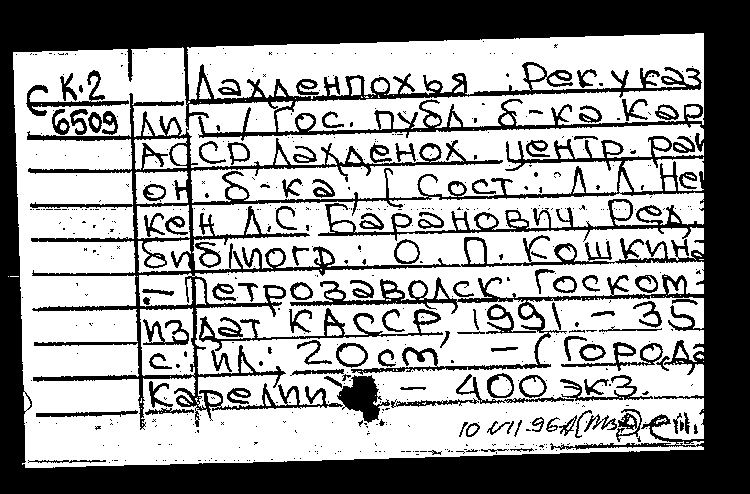 С К.2 Лахденпохья : Рек. указ
6509 лит. / Гос. публ. б-ка Кар
АССР, Лахденох. центр. рай
он. б-ка; [ Сост.: Л. Л. Ней
кен, Л.С. Баранович; Ред.
библиогр.: О. П. Кошкина
. - Петрозаводск: Госком-
издат КАССР, 1991. - 35
с.: ил.; 20 cm. - ( Города
Карелии - 400 экз.
10 VII.96